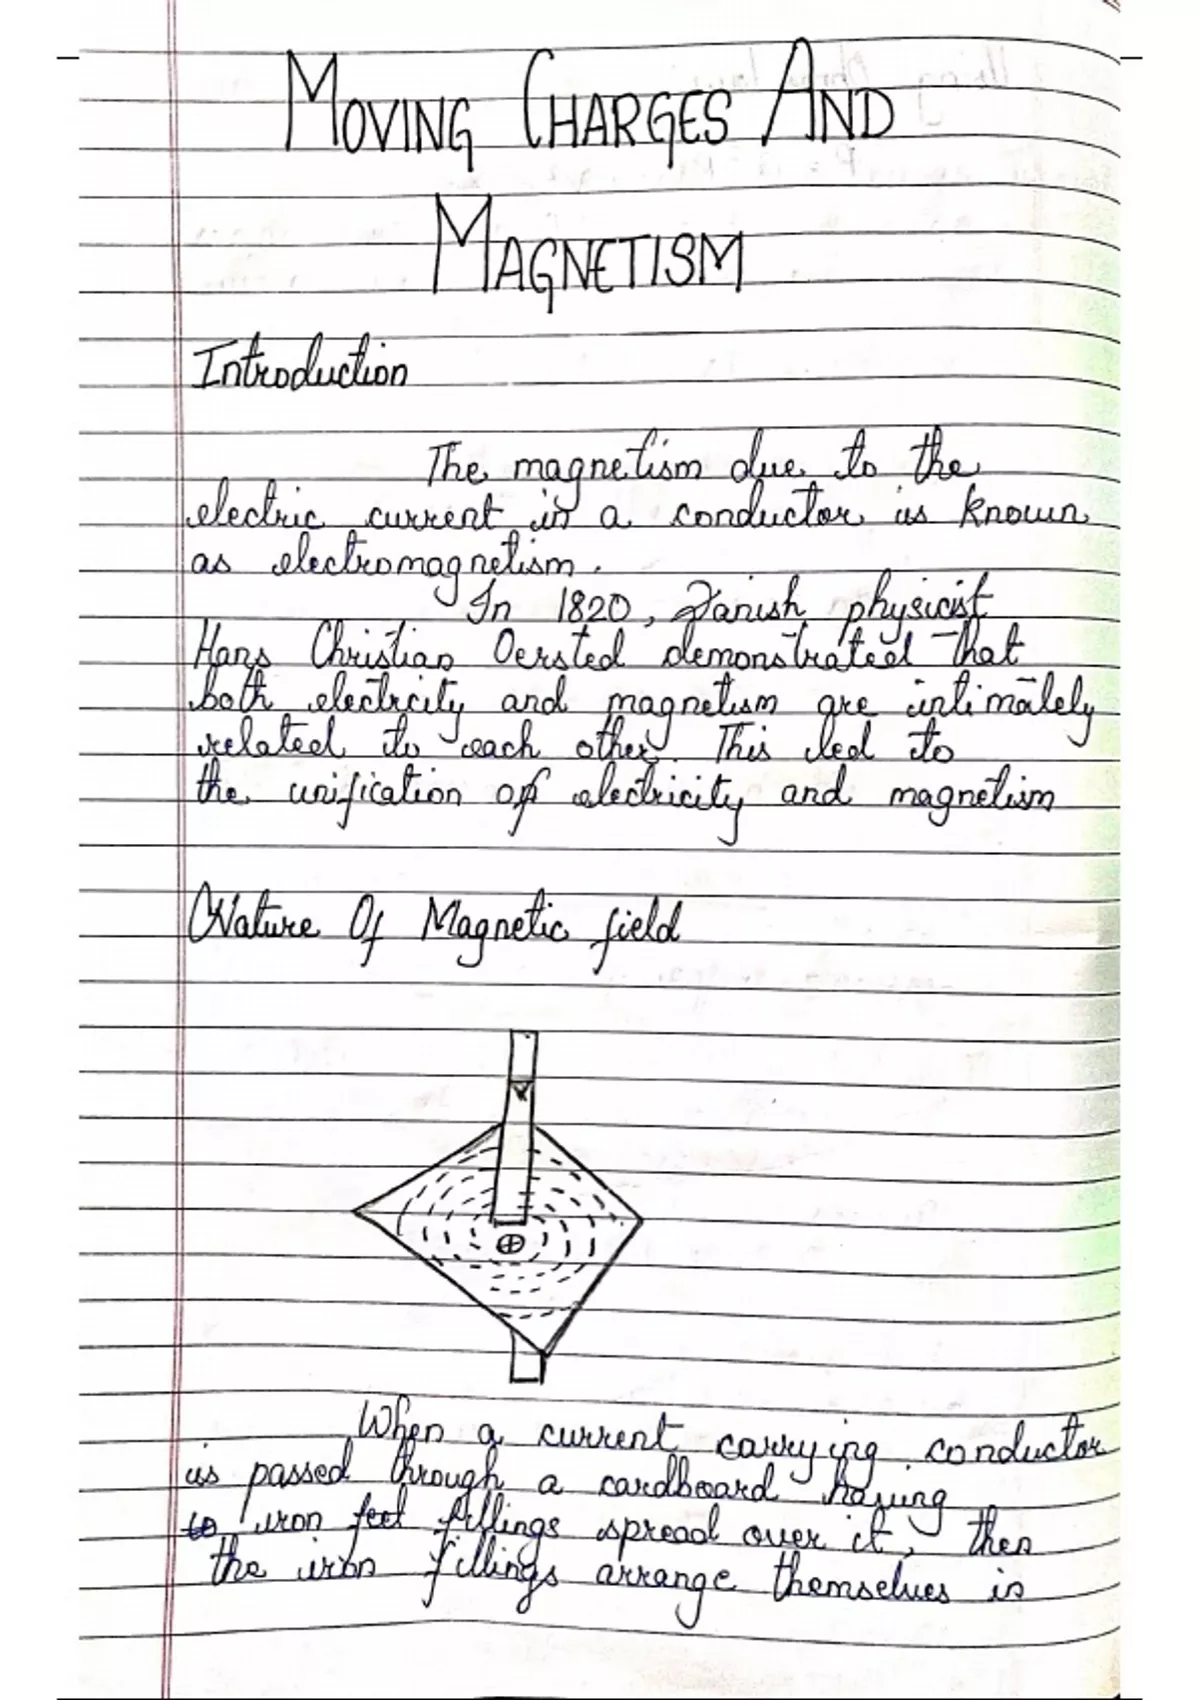 MOVING CHARGES AND
MAGNETISM
Introduction
The magnetism due to the
electric current in a conductor is known
as electromagnetism.
In 1820, Danish physicist
Hans Christian Oersted demonstrated that
both electricity and magnetism are intimately
related to each other. This led to
the unification of electricity and magnetism
Nature Of Magnetic field
When a current carrying conductor
is passed through a cardboard having
iron fillings spread over it, then
the iron fillings arrange themselves in